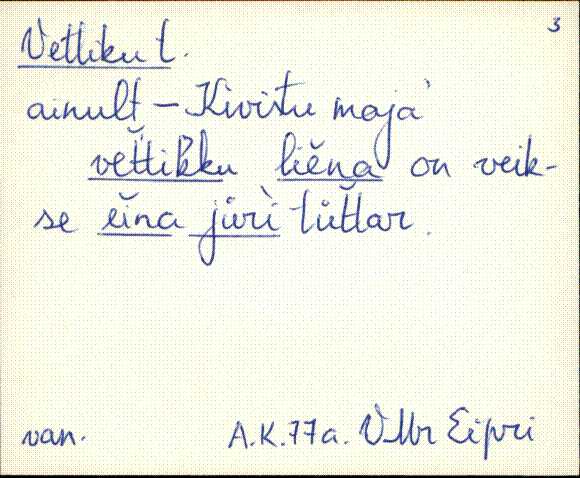 3
Vettiku t.
ainult – Kivistu maja'
vettikku liĕna on veik-
se eĭna jüri tüt̆lar.
van. A.K.77a. VMr Eipri